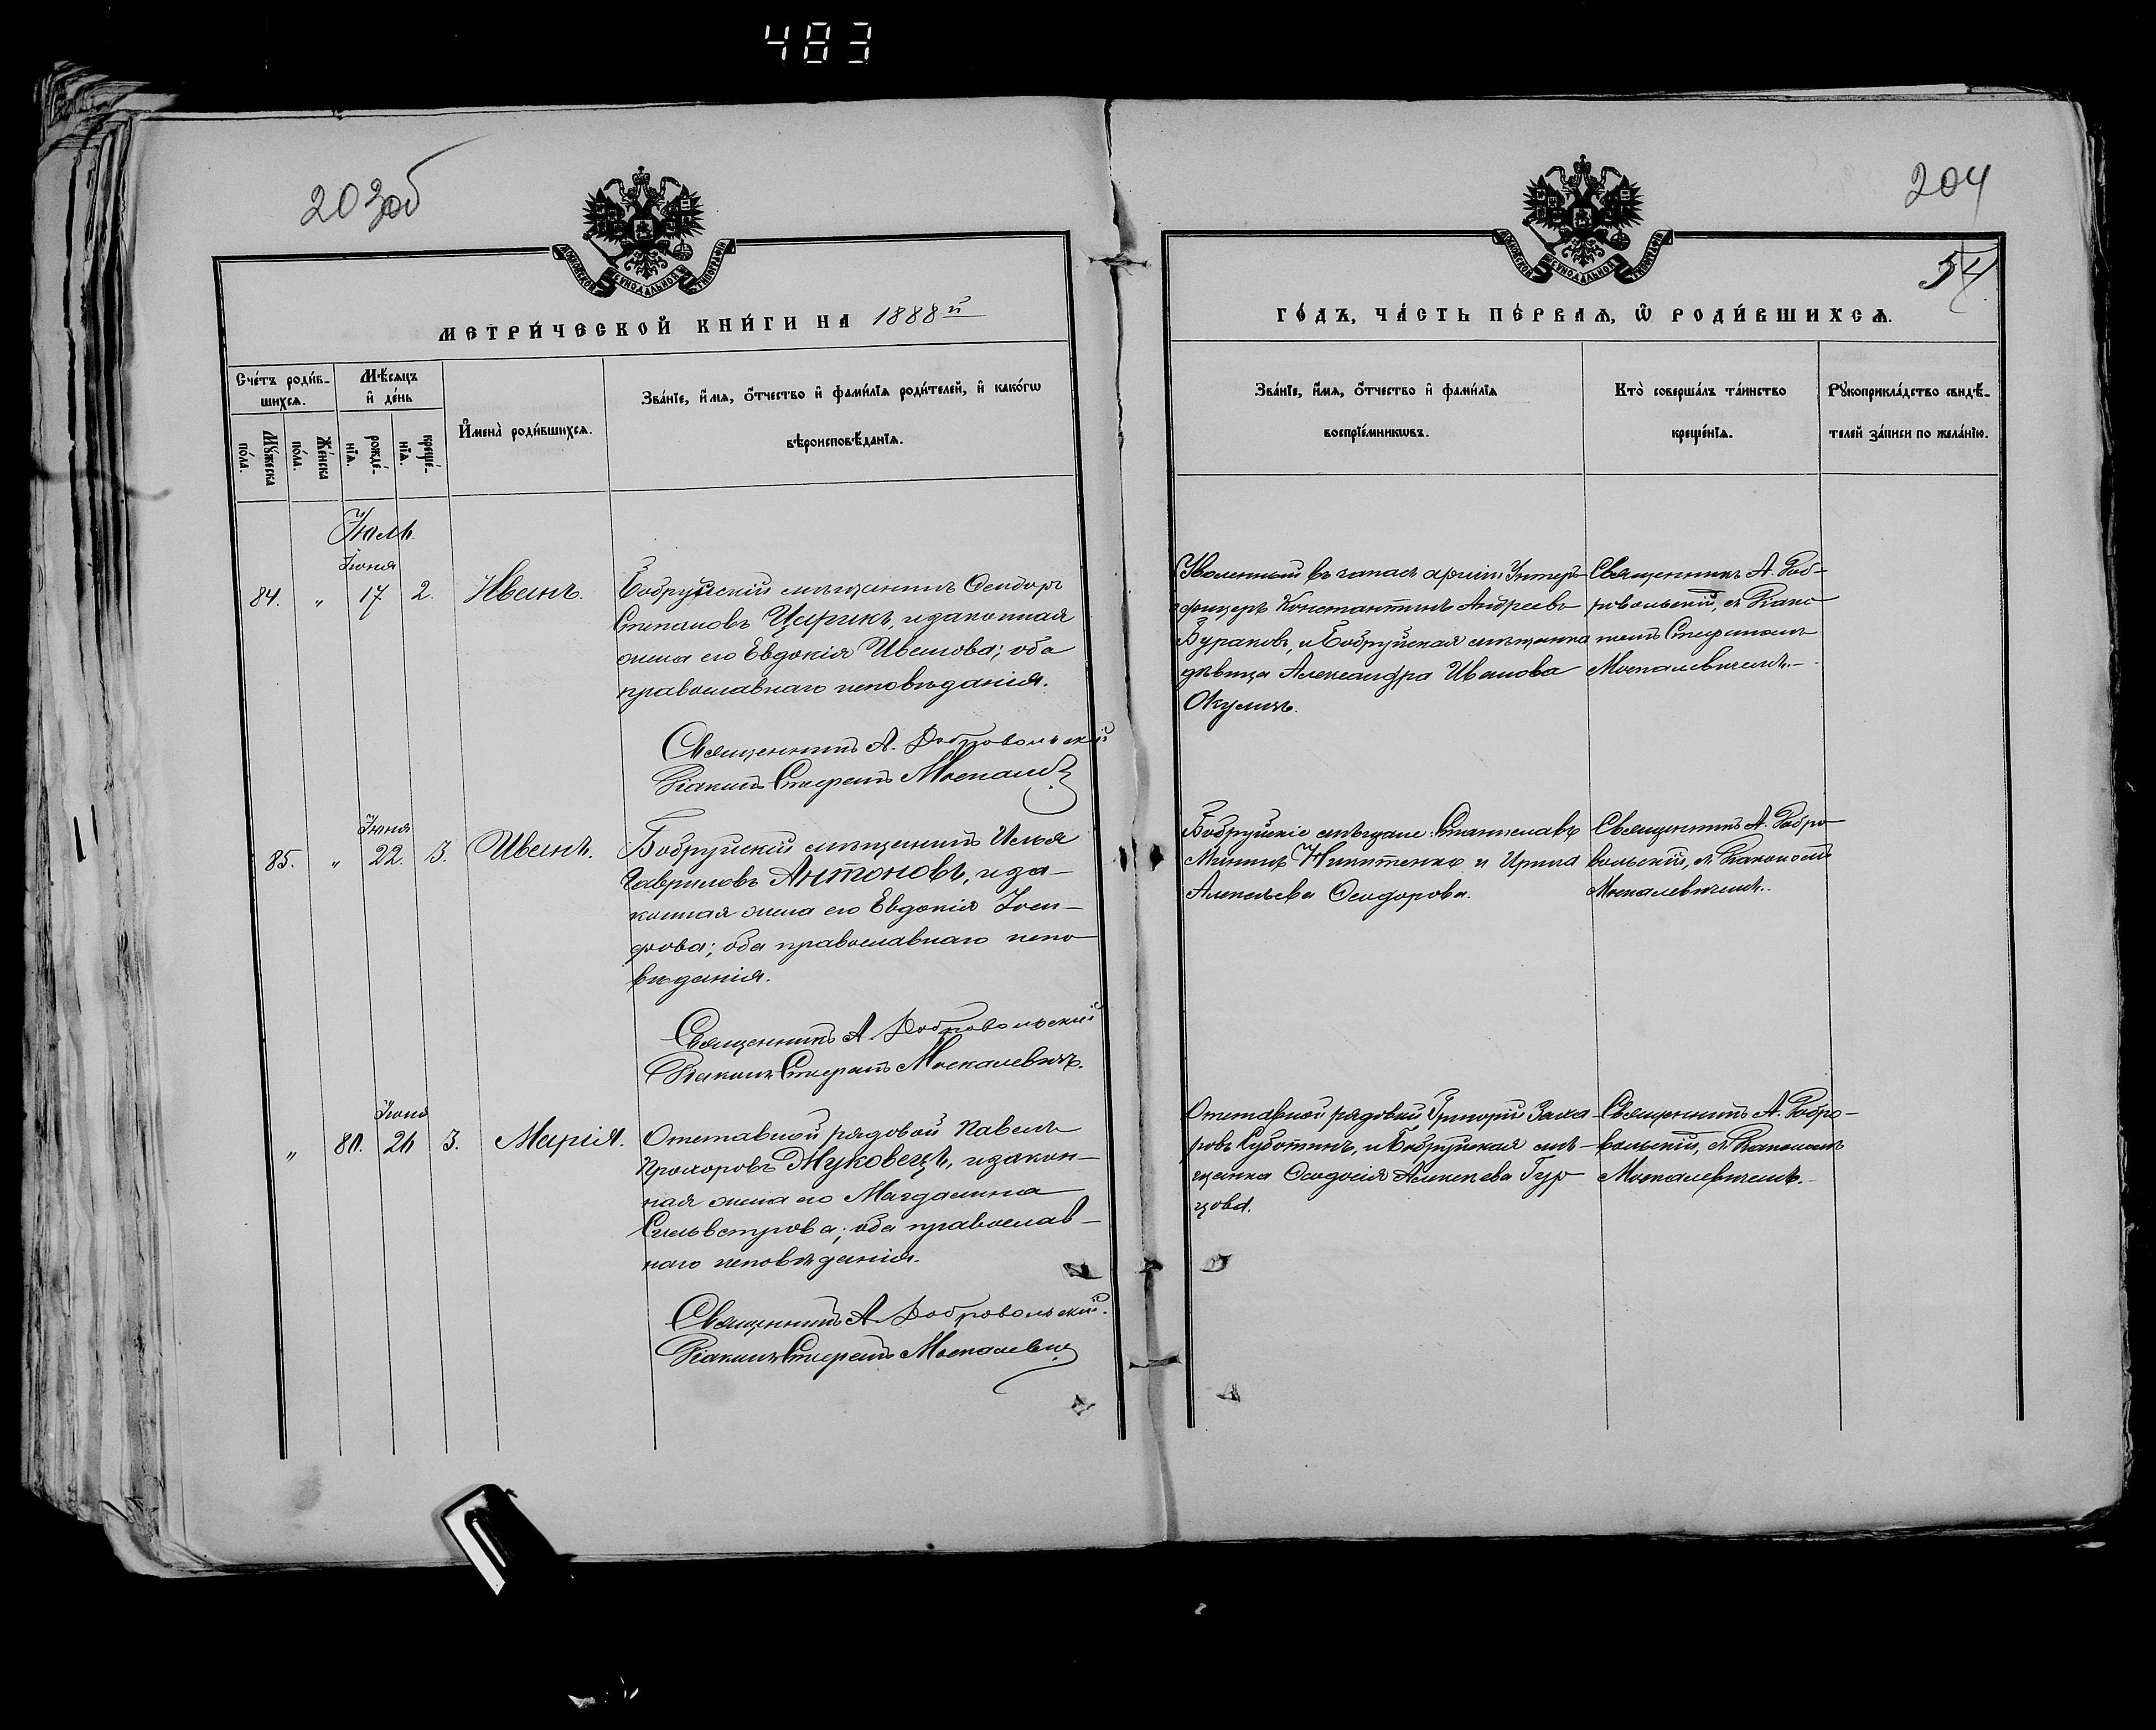 483
203об
204
54
МОСКОВСКОЙ СѴНОДАЛЬНОЙ ТИПОГРАФІИ
МОСКОВСКОЙ СѴНОДАЛЬНОЙ ТИПОГРАФІИ
МЕТРИ́ЧЕСКОЙ КНИ́ГИ НА 1888й
ГО́ДЪ, ЧА́СТЬ ПЕ́РВАѦ, Ѽ РОДИ́ВШИХСѦ.
Сче́тъ роди́в-
шихсѧ.
Мꙋ́жеска по́ла.
Же́нска по́ла.
Мѣ́сяцъ и҆ де́нь
рожде́-нїѧ.
креще́-нїѧ.
И҆мена̀ роди́вшихсѧ.
Зва́нїе, и҆́мѧ, о҆́тчество и҆ фами́лїѧ роди́телей, и҆ како́гѡ
вѣроисповѣ́данїѧ.
Зва́нїе, и҆́мѧ, о҆́тчество и҆ фами́лїѧ
воспрїе́мникѡвъ.
Кто̀ соверша́лъ та́инство
креще́нїѧ.
Рꙋкоприкла́дство свидѣ́-
телей за́писи по жела́нїю.
Іюль
Іюня
84. „ 17 2. Иванъ.
Бобруйскій мѣщанинъ Ѳеодоръ
Степановъ Царикъ, и законная
жена его Евдокія Иванова; оба
православнаго исповѣданія.
Священникъ А. Добровольскій
Діаконъ Стефанъ Москалев
Уволенный въ запасъ арміи Унтеръ-
офицеръ Константинъ Андреевъ
Бураковъ, и Бобруйская мѣщанка
дѣвица Александра Иванова
Окуличъ.
Священникъ А. Доб-
ровольскій, съ Діако-
номъ Стефаномъ
Москалевичемъ.
Іюня
85. „ 22. 3. Иванъ.
Бобруйскій мѣщанинъ Илья
Гавриловъ Антоновъ, и за-
конная жена его Евдокія Іоси-
фова; оба православнаго испо-
вѣданія.
Священникъ А. Добровольскій
Діаконъ Стефанъ Москалевичъ.
Бобруйскіе мѣщане: Станиславъ
Мининъ Никитенко и Ирина
Алексѣева Ѳеодорова.
Священникъ А. Добро-
вольскій, съ Діакономъ
Москалевичемъ.
Іюня
„ 80. 26 3. Марія.
Отставной рядовой Павелъ
Прохоровъ Жуковецъ, и закон-
ная жена его Магдалина
Сильвестрова; оба православ-
наго исповѣданія.
Священникъ А. Добровольскій.
Діаконъ Стефанъ Москалевич
Отставной рядовой Григорій Заха-
ровъ Суботинъ, и Бобруйская мѣ-
щанка Ѳеодосія Алексѣева Гур
цова.
Священникъ А. Добро-
вольскій, съ Діакономъ
Москалевичемъ.